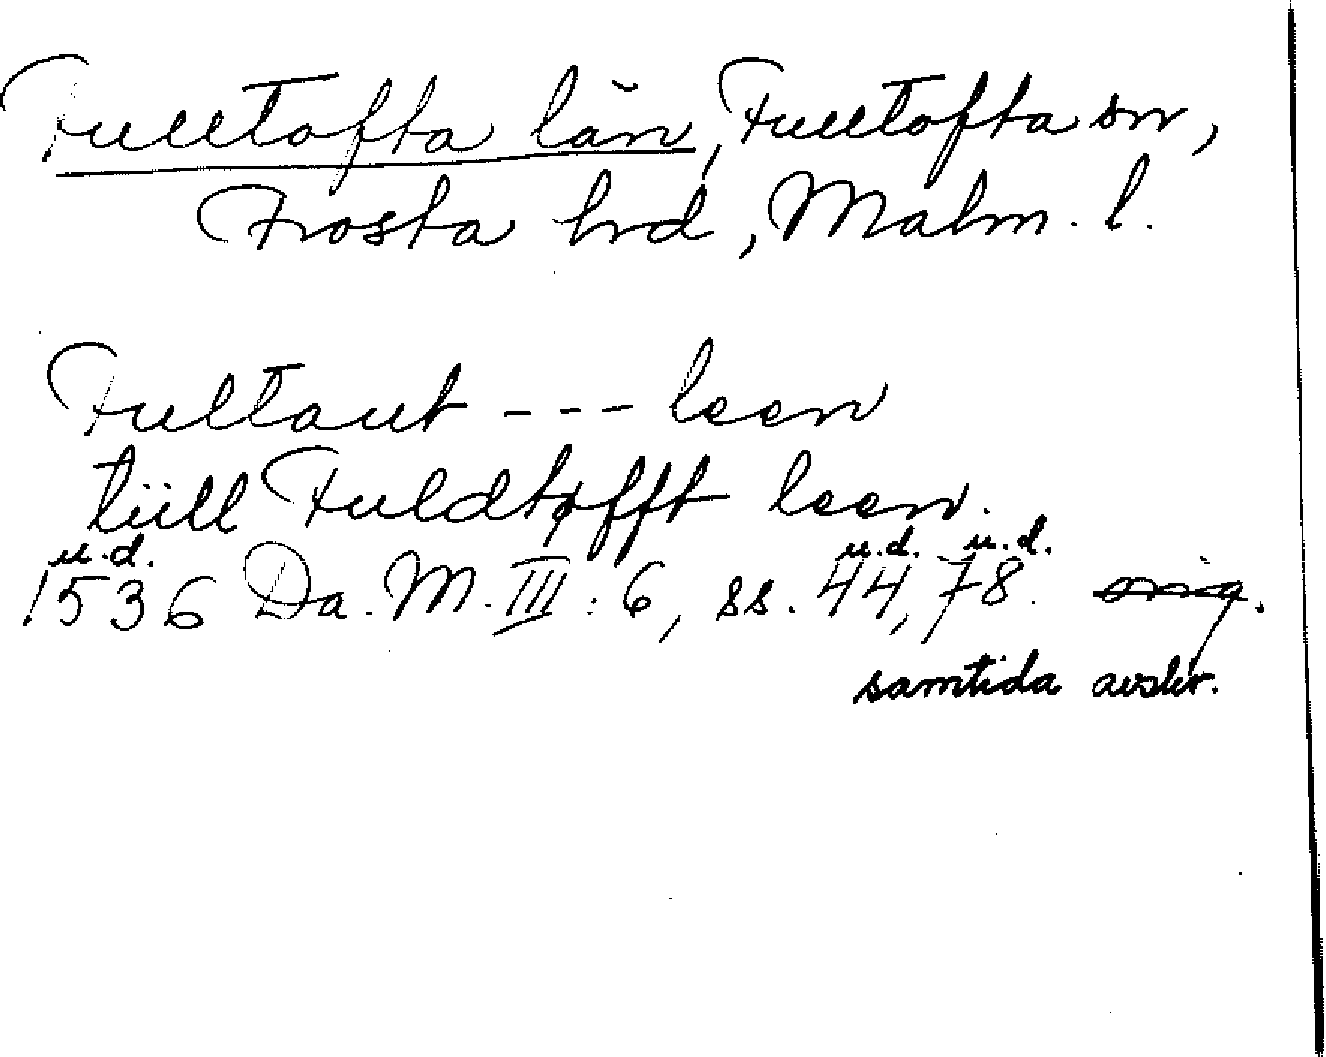 Fulltofta län, Fulltofta sn,
Frosta hd, Malm. l.
Fultaut --- leen
tüll Fuldtofft leen.
u.d. u.d. u.d.
1536 Da. M. III: 6, ss. 44, 78. orig.
samtida avskr.